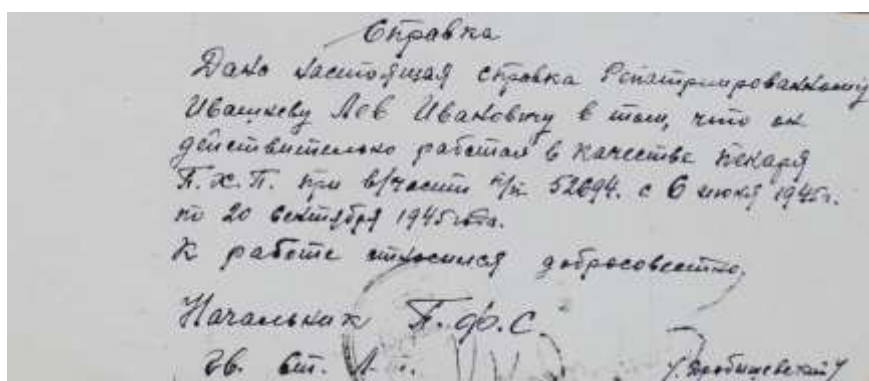 Справка
Дана настоящая справка Репатриированному
Ивашневу Лев Ивановичу в том, что он
действительно работал в качестве пекаря
П.Х.П. при в/части п/п. 52694. с 6 июня 1945г.
по 20 сентября 1945 года.
К работе относился добросовестно,
Начальник П.Ф.С.
Гв.
/Дробышевский/